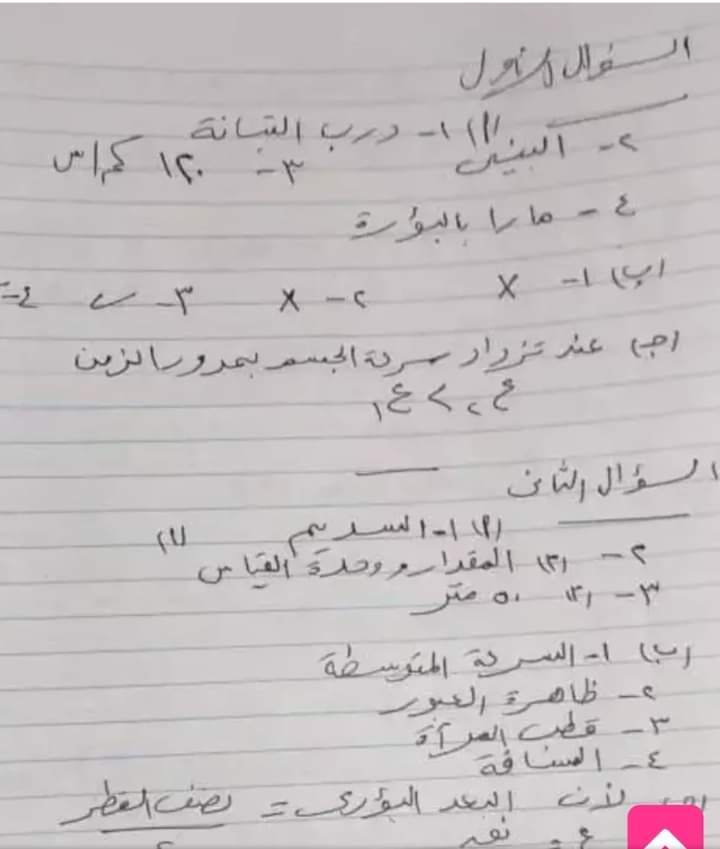 السؤال الأول
(أ) ١- درب التبانة
٢- البينى ٣- ١٢٠ كم/س
٤- مارا بالبؤرة
(ب) ١- X ٢- X ٣- ✓ ٤-
(جـ) عند تزداد سرعة الجسم بمرور الزمن
ع٢ > ع١
السؤال الثانى
(أ) ١- السديم (١)
٢- (٣) المقدار و وحدة القياس
٣- (٣) ٥٠ متر
(ب) ١- السرعة المتوسطة
٢- ظاهرة العبور
٣- قطب المرآة
٤- المسافة
(جـ) لأن البعد البؤرى = نصف القطر